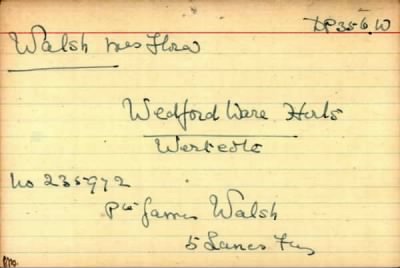 DP 356. W
Walsh Mrs Flora
Wedford Ware Herts
No 235972
Pte James Walsh
5 Lancs Fus